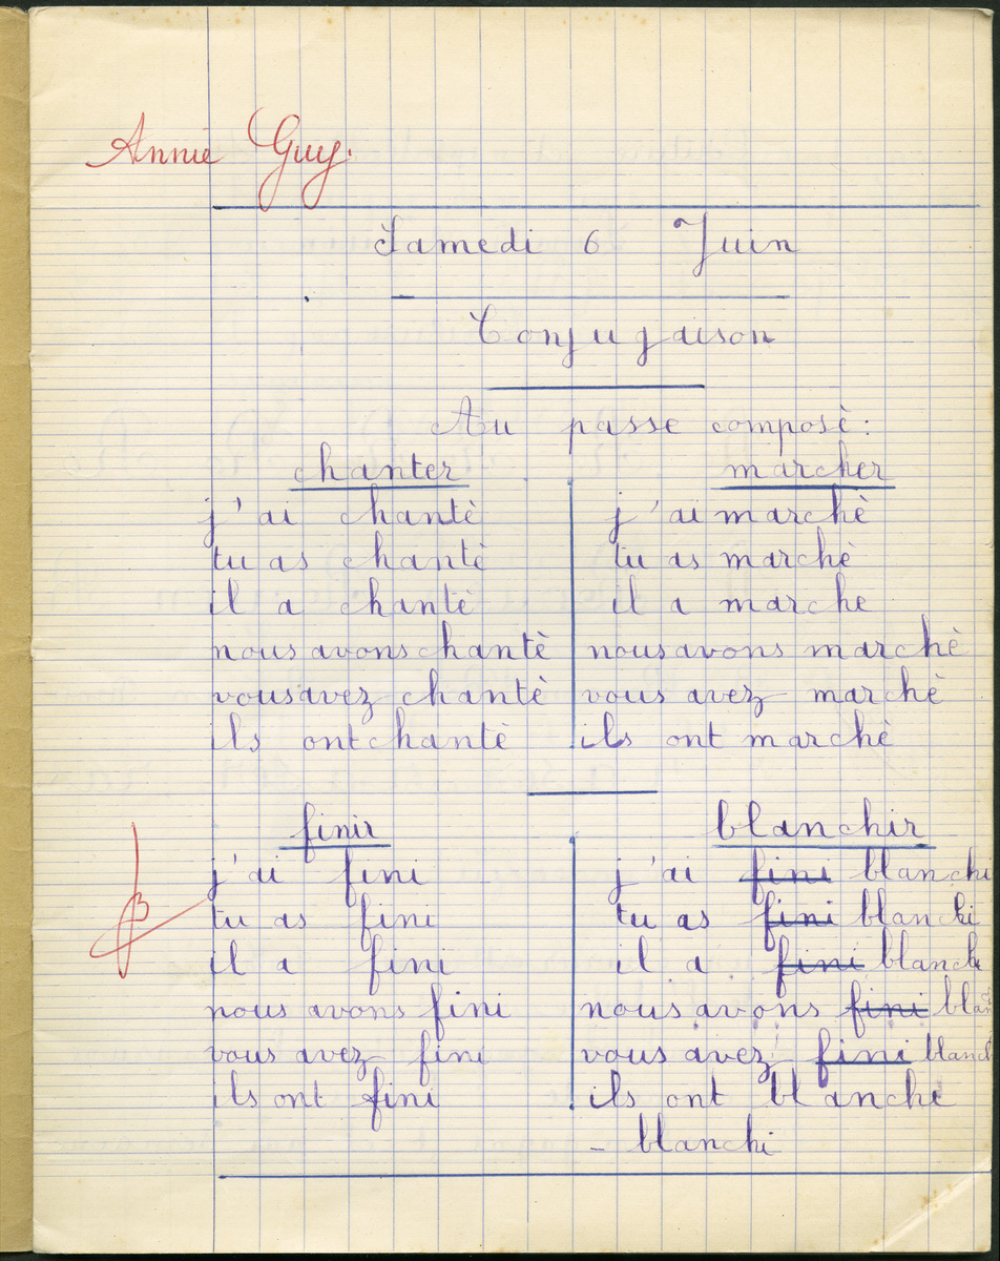 Annie Guy.
Samedi 6 Juin
Conjugaison
Au passe composè:
chanter
j'ai chantè
tu as chantè
il a chantè
nous avons chantè
vous avez chantè
ils ont chantè
marcher
j'ai marchè
tu as marchè
il a marche
nous avons marchè
vous avez marchè
ils ont marchè
finir
j'ai fini
tu as fini
il a fini
nous avons fini
vous avez fini
ils ont fini
blanchir
j'ai fini blanchi
tu as fini blanchi
il a fini blanchi
nous avons fini blan
vous avez fini blanch
ils ont blanche
- blanchi